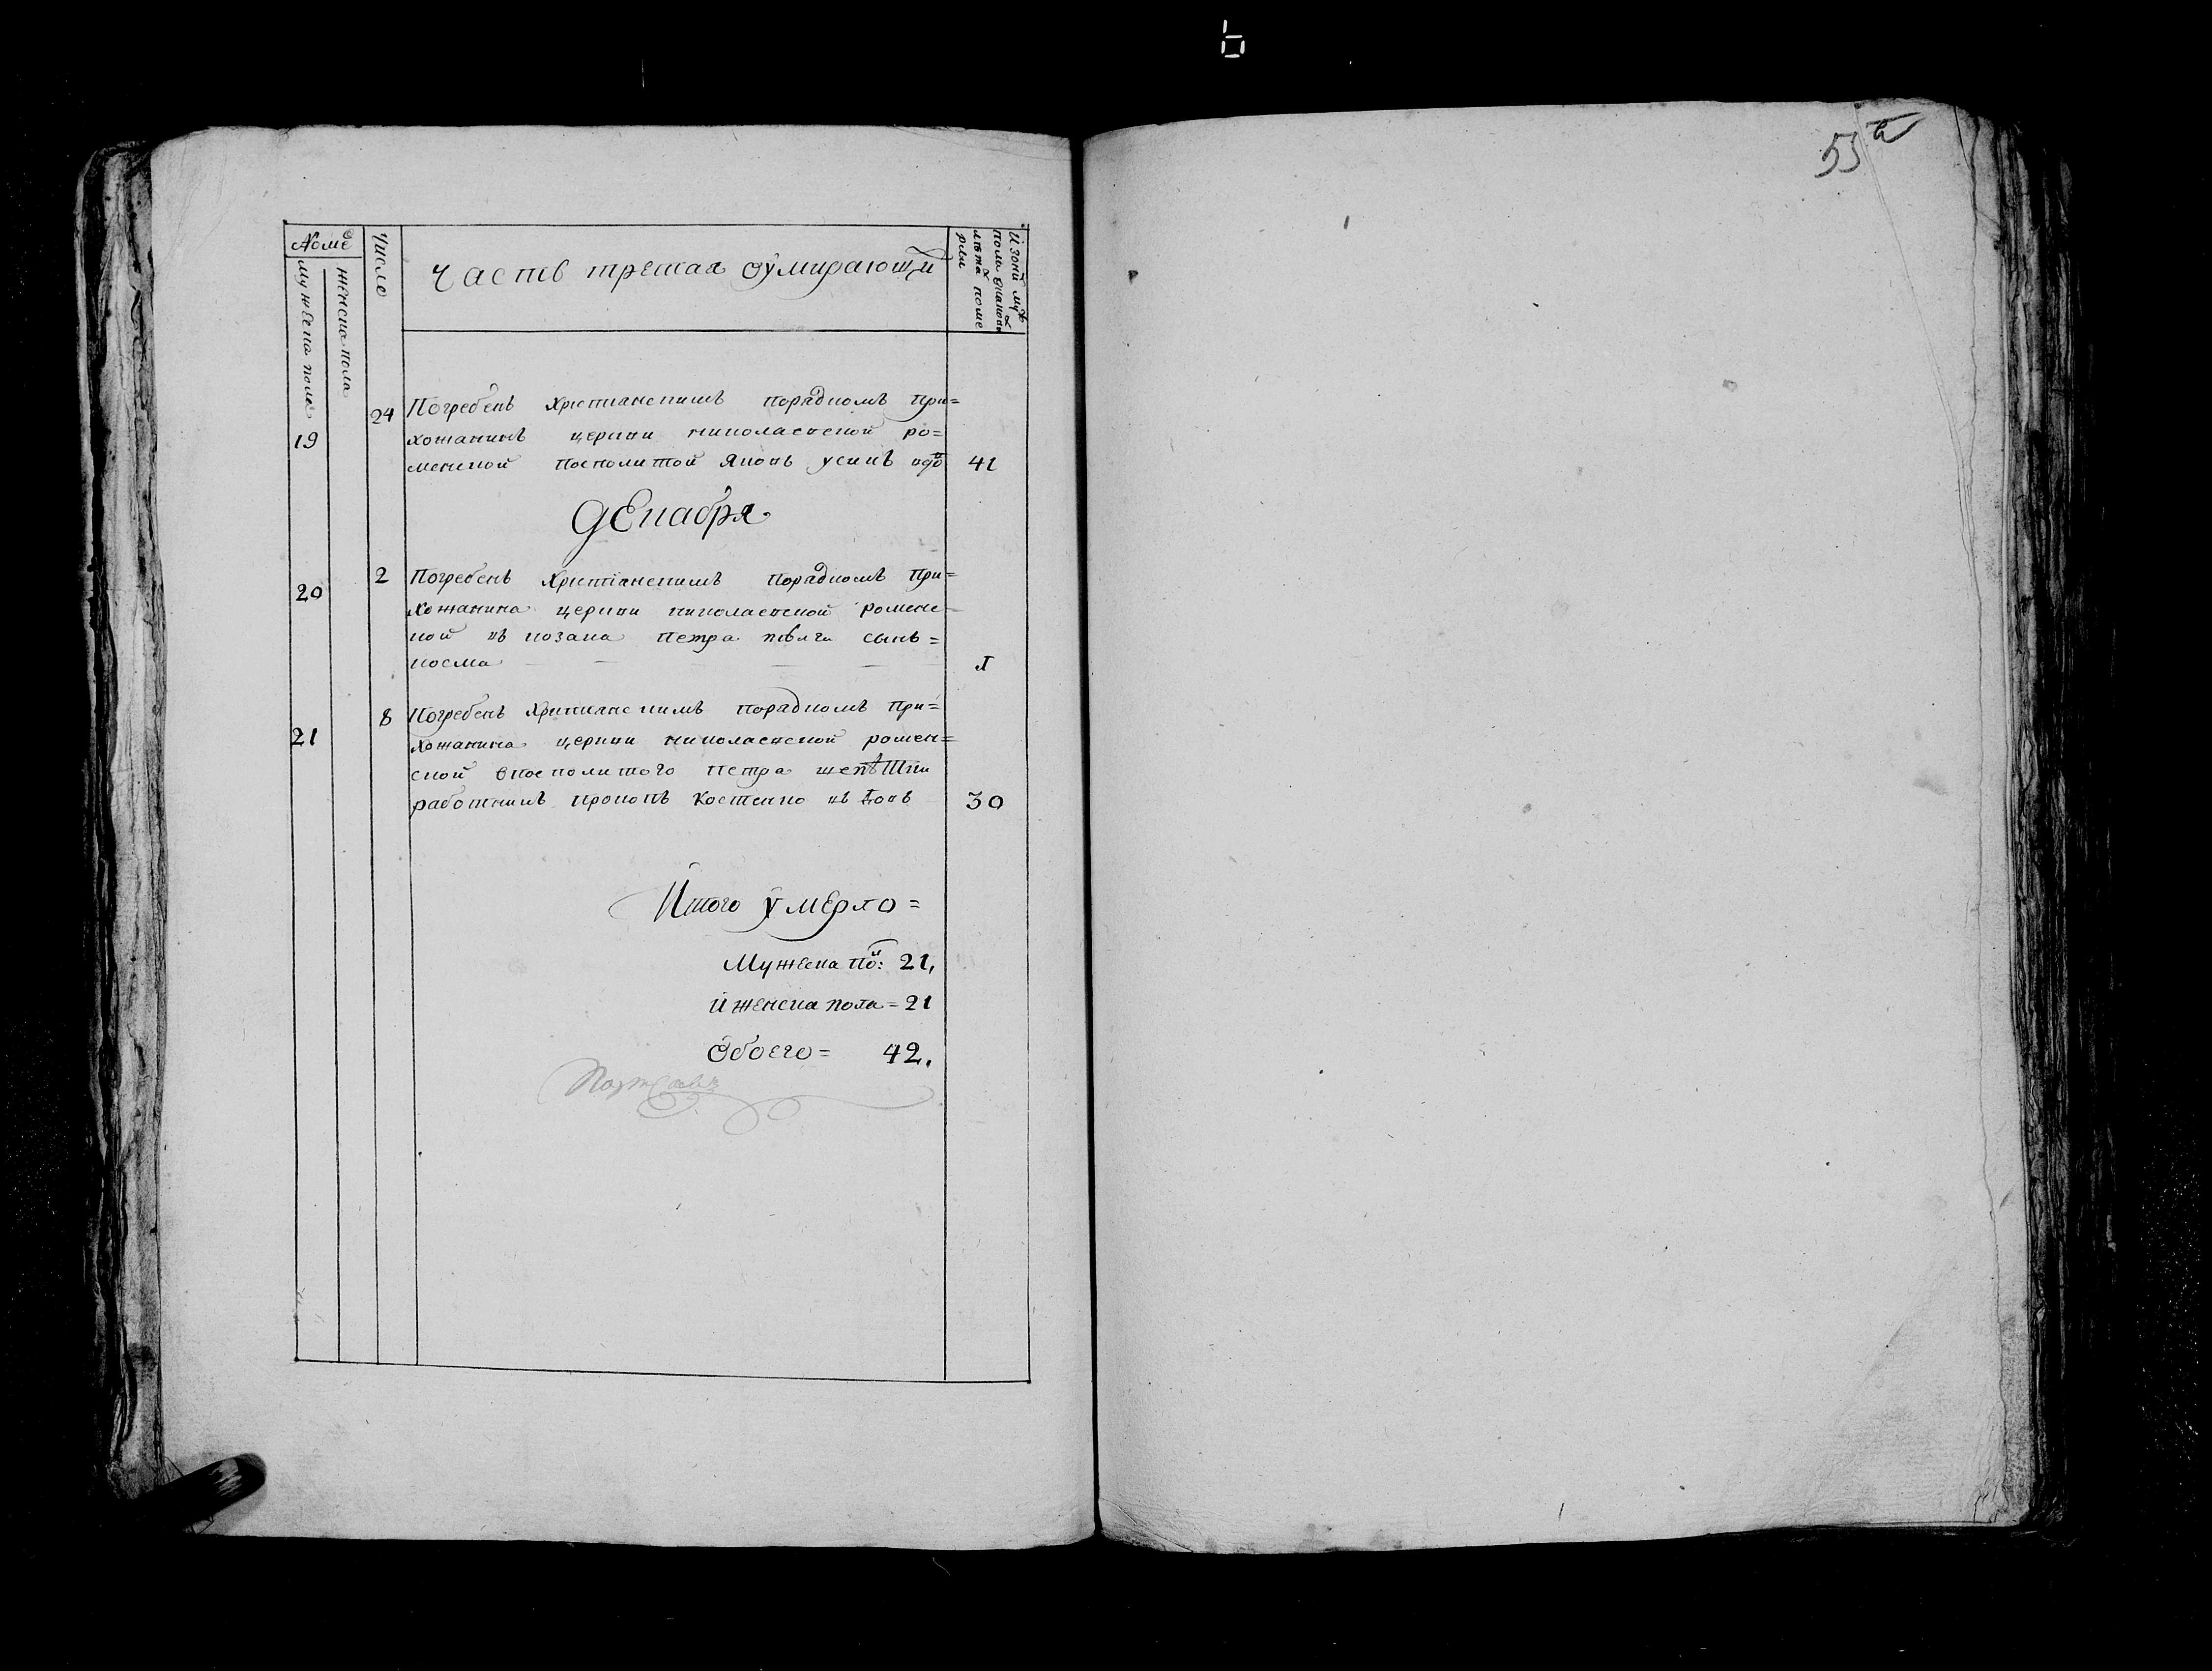 Номе
мужеска пола
женска пола
Число
Часть третая оумирающи
Изони му
пола
лета поме
рли
19
24
Погребенъ христианскимъ порадкомъ при=
хожанинъ церкви николаевской ро=
менской посполитой Яковъ усикъ вдо
41
декабря
20
2
Погребенъ христіанскимъ порадкомъ при=
хожанина церкви николаевской роменс=
кой въ козака петра сынъ=
косма
1
21
8
Погребенъ христианскимъ порадкомъ при=
хожанина церкви николаевской ромен=
ской посполитого петра
работникъ прокопъ костенко
30
Итого умерло=
Мужеска по: 21,
и женска пола=21
Обоего= 42.
55